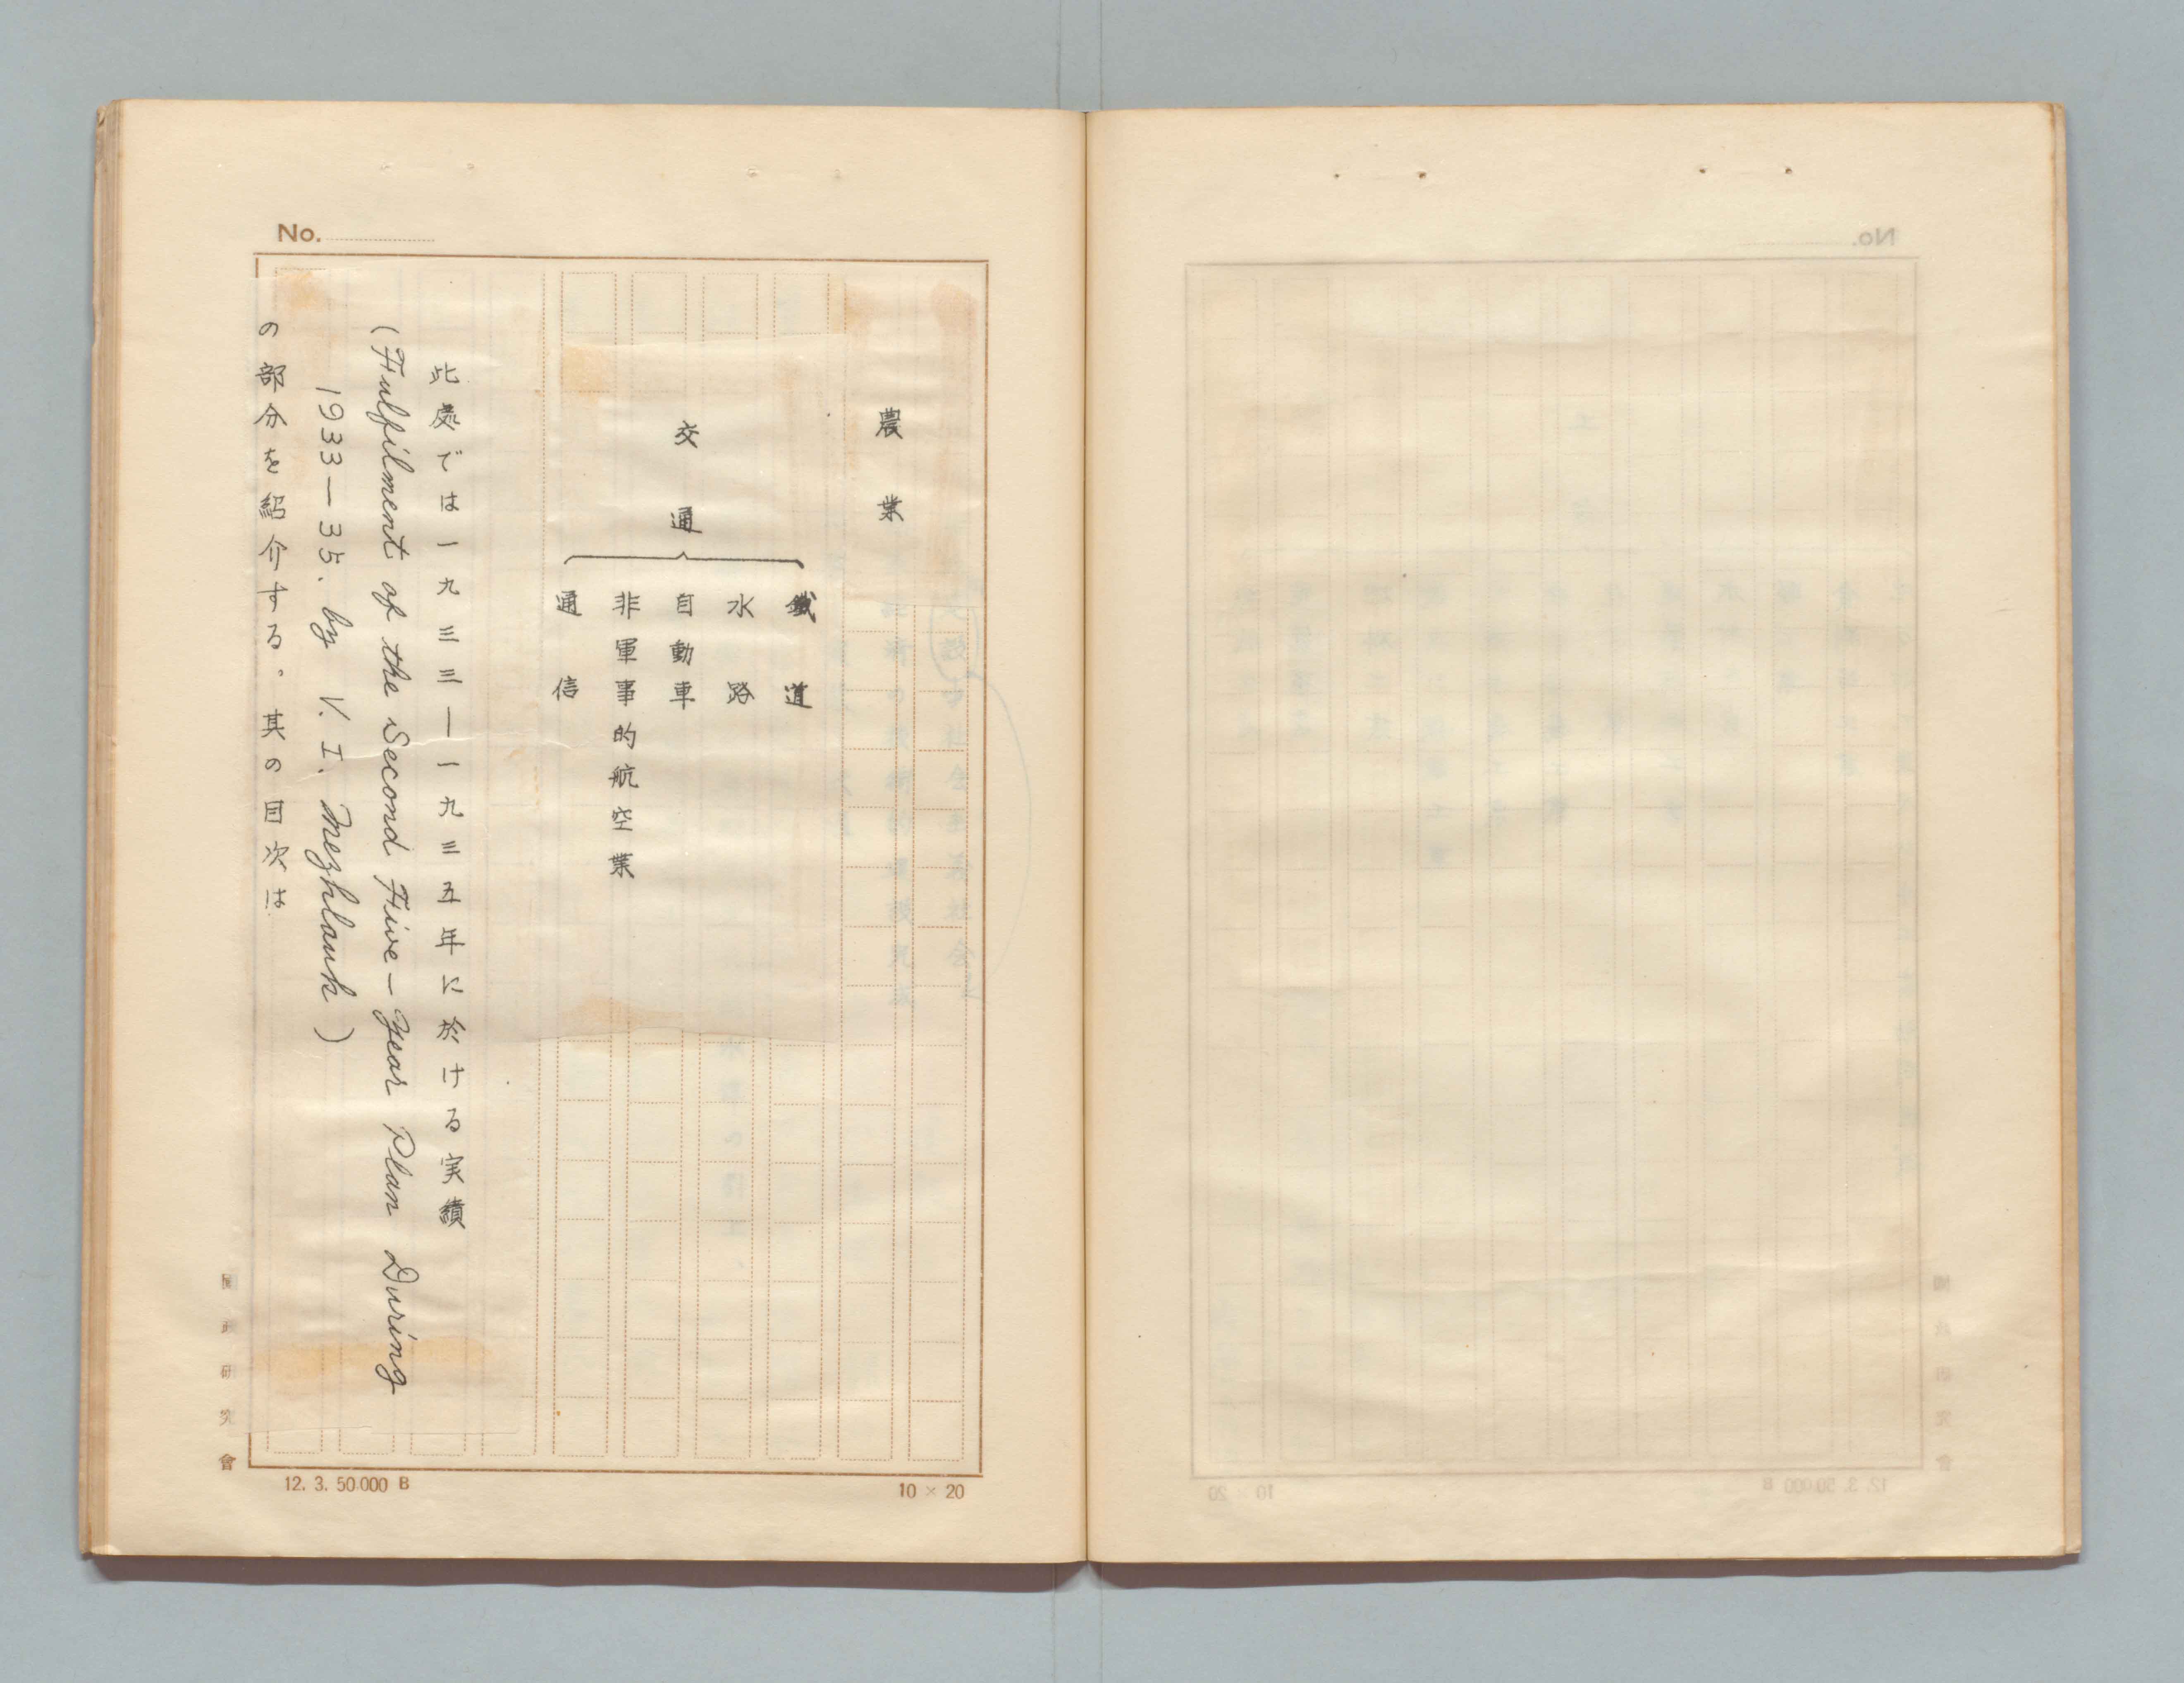 No.
農業
交通
鐵道
水路
自動車
非軍事的航空業
通信
此處では一九三三―一九三五年に於ける実績
(Fulfilment of the Second Five-Year Plan During
1933-35. by V. I. Mezhlauk)
の部分を紹介する。其の目次は
國政研究會
12. 3. 50.000 B
10 × 20